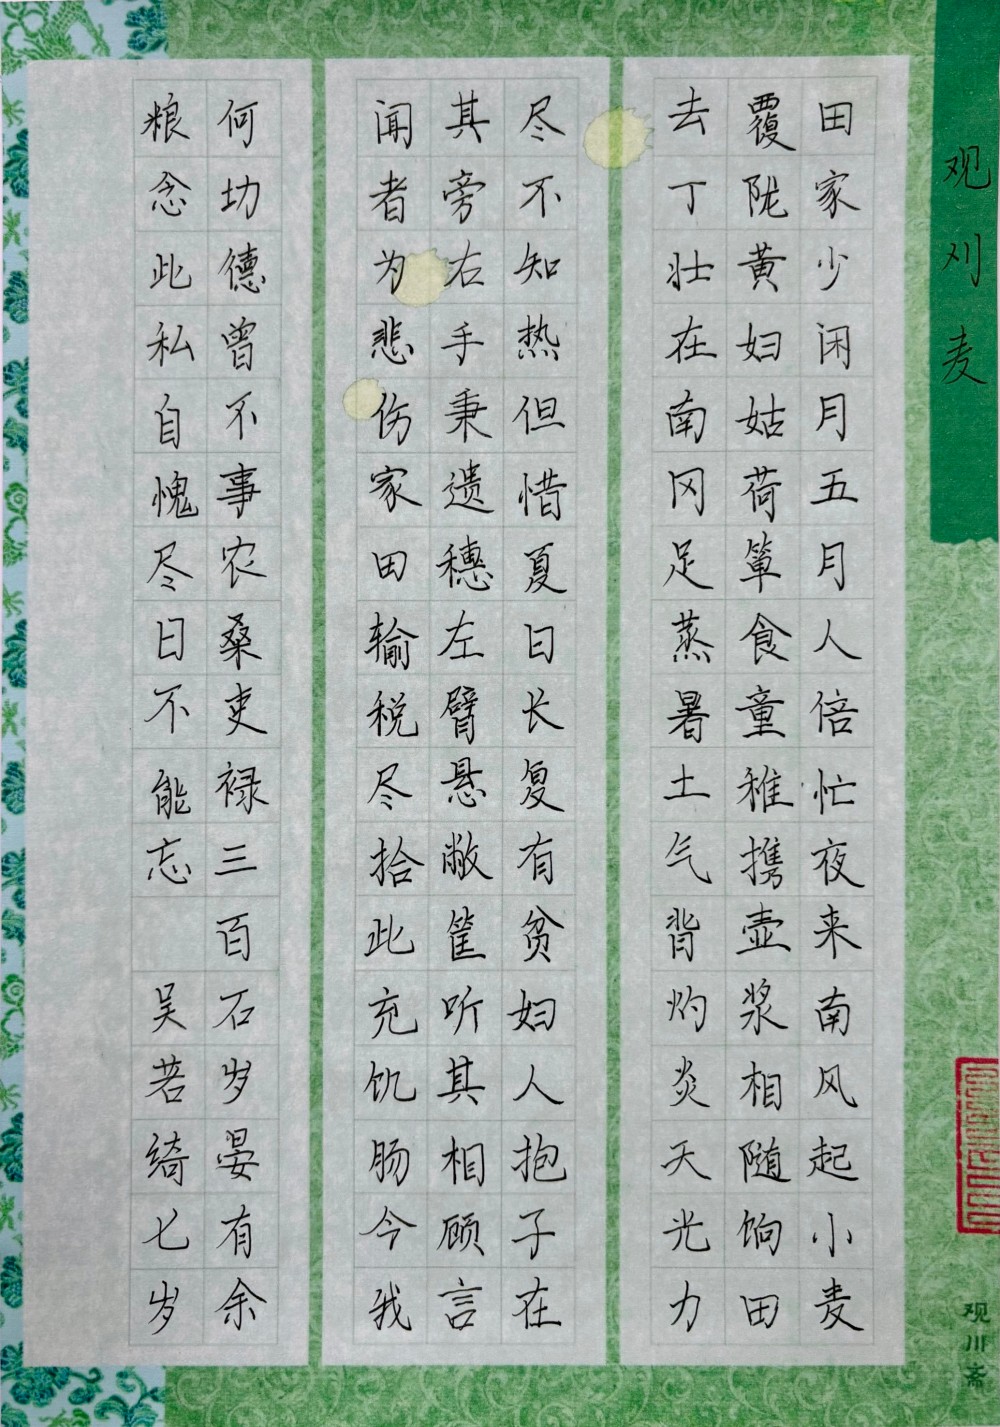 观刈麦
田家少闲月五月人倍忙夜来南风起小麦
覆陇黄妇姑荷箪食童稚携壶浆相随饷田
去丁壮在南冈足蒸暑土气背灼炎天光力
尽不知热但惜夏日长复有贫妇人抱子在
其旁右手秉遗穗左臂悬敝筐听其相顾言
闻者为悲伤家田输税尽拾此充饥肠今我
何功德曾不事农桑吏禄三百石岁晏有余
粮念此私自愧尽日不能忘 吴若绮七岁
观川斋